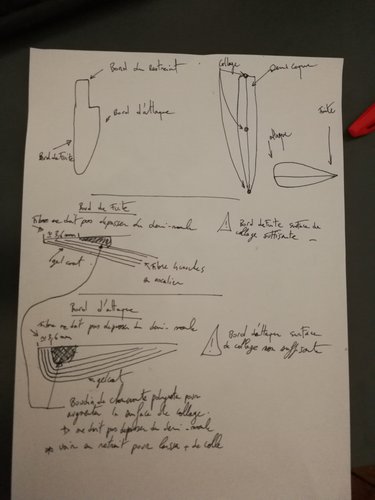 Bord du
Bord d'attaque
Bord de Fuite
Collage
Demi coque
Fuite
Bord de Fuite
Fibre ne doit pas dépasser du demi-moule
≈ 3,6 mm
gel coat
Fibre 4 couches
en escalier
Bord de fuite surface de
collage suffisante
Bord d'attaque
Fibre ne doit pas dépasser du demi-moule
≈ 3,6 mm
gelcoat
Bord d'attaque surface
de collage non suffisante
Boudin de choucroute polyester pour
augmenter la surface de collage.
ne doit pas dépasser du demi-moule
voir en retrait pour laisser + de colle